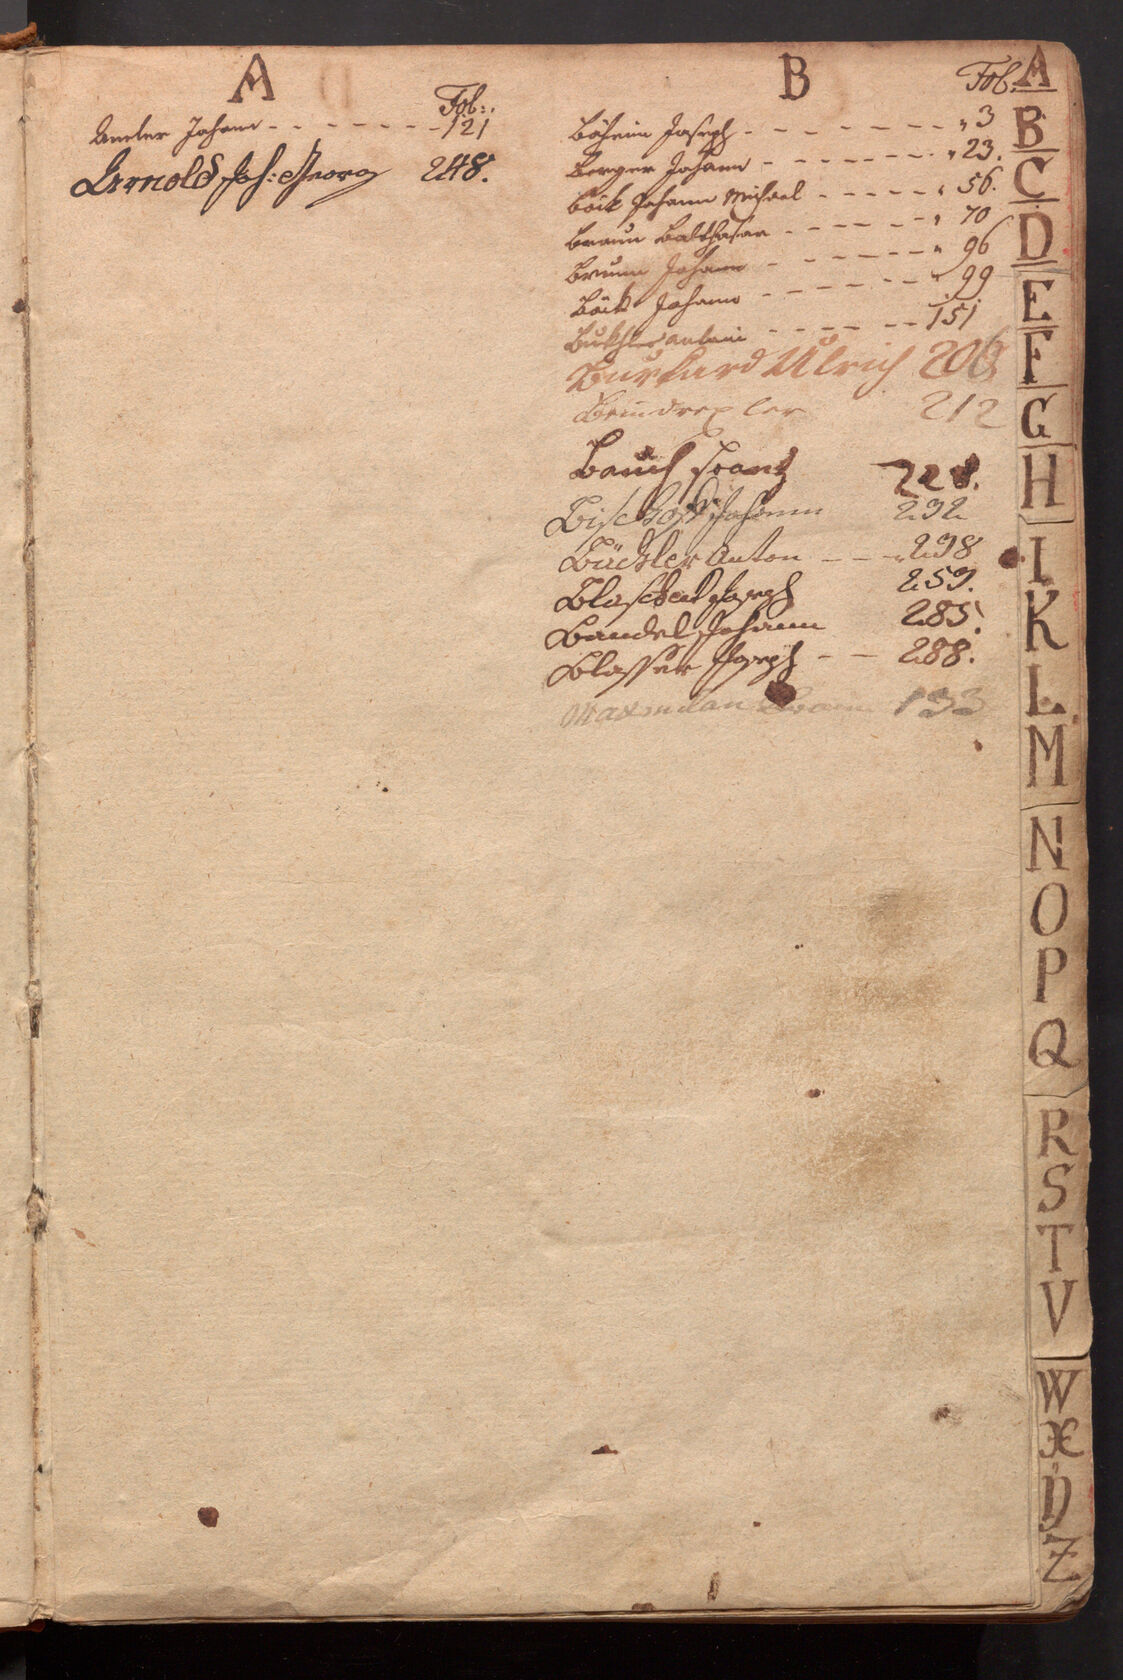 A
Fol:
Johann - - - - - - - 121
Arnold Joh: Georg 248.
B
Fol.
Böheim Joseph - - - - - - - " 3
Berger Johann - - - - - - " 23.
Böck Johann Michael - - - - - " 56.
Braun Balthasar - - - - - " 70
Brunn Johann - - - - - " 96
Böck Johann - - - - - " 99
Antoni - - - - - - 151
Burkard Ulrich 206
212
Bauch Frantz 228.
Bischoff Johann 232
Büchler Anton - - - 238
Joseph 259.
Bandel Johann 285.
Blasser Joseph - - 288.
Maxmilan 133
A
B
C
D
E
F
G
H
I
K
L
M
N
O
P
Q
R
S
T
V
W
X
Y
Z